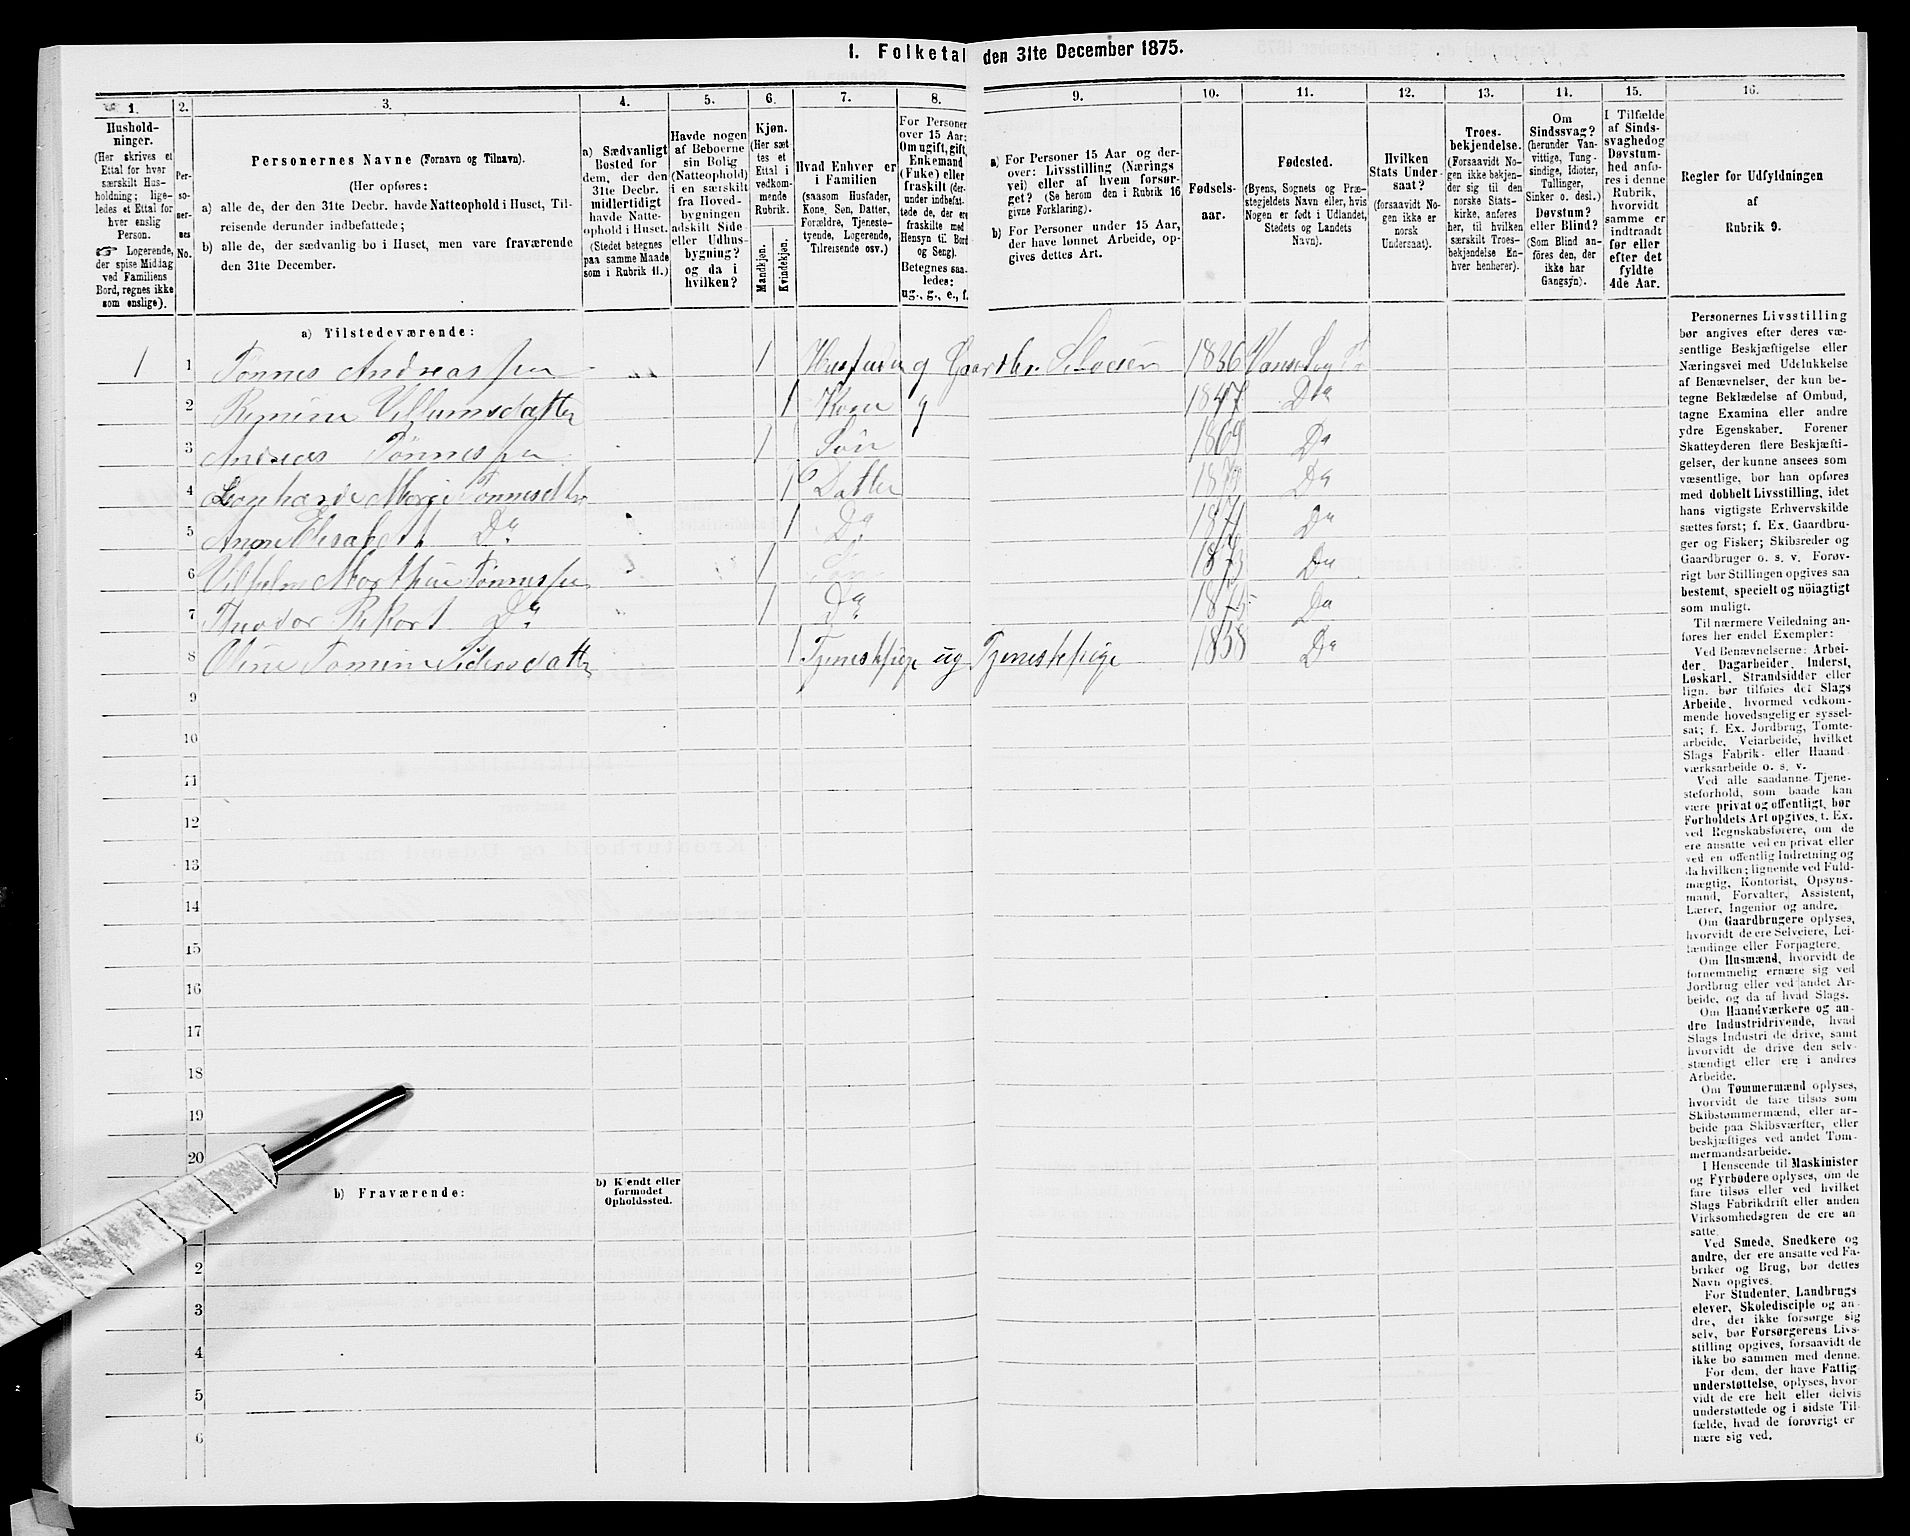 1. Folketal den 31te December 1875.
1.
Hushold-
ninger.
(Her skrives et
Ettal for hver
særskilt Hus-
holdning; lige-
ledes et Ettal for
hver enslig
Person.
☞ Logerende,
der spise Middag
ved Familiens
Bord, regnes ikke
som enslige).
2.
Per-
so-
ner-
nes
No.
3.
Personernes Navne (Fornavn og Tilnavn).
(Her opføres:
a) alle de, der den 31te Decbr. havde Natteophold i Huset, Til-
reisende derunder indbefattede;
b) alle de, der sædvanlig bo i Huset, men vare fraværende
den 31te December.
4.
a) Sædvanligt
Bosted for
dem, der den
31te Decbr.
midlertidigt
havde Natte-
ophold i Huset.
(Stedet betegnes
paa samme Maade
som i Rubrik 11.)
5.
Havde nogen
af Beboerne
sin Bolig
(Natteophold)
i en særskilt
fra Hoved-
bygningen
adskilt Side-
eller Udhus-
bygning?
og da i
hvilken?
6.
Kjøn.
(Her sæt-
tes et
Ettal i
vedkom-
mende
Rubrik.
Mandkjøn.
Kvindekjøn.
7.
Hvad Enhver er
i Familien
(saasom Husfader,
Kone, Søn, Datter,
Forældre, Tjeneste-
tyende, Logerende,
Tilreisende osv.)
8.
For Personer
over 15 Aar:
Om ugift, gift,
Enkemand
(Fuke) eller
fraskilt (der-
under indbefat-
tede de, der ere
fraskilte med
Hensyn til Bord
og Seng).
Betegnes saa-
ledes:
ug., g., e., f.
9.
a) For Personer 15 Aar og der-
over: Livsstilling (Nærings-
vei) eller af hvem forsør-
get? (Se herom den i Rubrik 16
givne Forklaring).
b) For Personer under 15 Aar,
der have lønnet Arbeide, op-
gives dettes Art.
10.
Fødsels-
aar.
11.
Fødested.
(Byens, Sognets og Præ-
stegjeldets Navn eller, hvis
Nogen er født i Udlandet,
Stedets og Landets
Navn).
12.
Hvilken
Stats Under-
saat?
(forsaavidt No-
gen ikke er
norsk
Undersaat).
13.
Troes-
bekjendelse.
(Forsaavidt No-
gen ikke bekjen-
der sig til den
norske Stats-
kirke, anføres
her, til hvilken
særskilt Troes-
bekjendelse En-
hver henhører).
14.
Om
Sindssvag?
(herunder Van-
vittige, Tung-
sindige, Idioter,
Tullinger,
Sinker o. desl.)
Døvstum?
eller Blind?
(Som Blind an-
føres den, der
ikke har
Gangsyn).
15.
I Tilfælde
af Sinds-
svaghedog
Døvstum-
hed anfø-
res i denne
Rubrik,
hvorvidt
samme er
indtraadt
før eller
efter det
fyldte
4de Aar.
16.
Regler for Udfyldningen
af
Rubrik 9.
a) Tilstedeværende:
1 1 Tønnes Andreassen 1 Husfader g Gaardbr. Selveier 1836
2 Villumsdatter 1 Kone g 1847 Do
3 Andreas Tønnessen 1 Søn 1869 Do
4 Tønnesdtr 1 Datter Do
5 Do 1 Do 1871 Do
6 Tønnessen 1 1873 Do
7 Theodor Do 1 Do 1875 Do
8 Oline 1 Tjenestepige ug Tjenestepige 1858 Do
9
10
11
12
13
14
15
16
17
18
19
20
b) Fraværende:
b) Kjendt eller
formodet
Opholdssted.
2
3
4
5
6
Personernes Livsstilling
bør angives efter deres væ-
sentlige Beskjæftigelse eller
Næringsvei med Udelukkelse
af Benævnelser, der kun be-
tegne Beklædelse af Ombud,
tagne Examina eller andre
ydre Egenskaber. Forener
Skatteyderen flere Beskjæfti-
gelser, der kunne ansees som
væsentlige, bør han opføres
med dobbelt Livsstilling, idet
hans vigtigste Erhvervskilde
sættes først; f. Ex. Gaardbru-
ger og Fisker; Skibsreder og
Gaardbruger o. s. v. Forøv-
rigt bør Stillingen opgives saa
bestemt, specielt og nöiagtigt
som muligt.
Til nærmere Veiledning an-
føres her endel Exempler:
Ved Benævnelserne: Arbei-
der, Dagarbeider, Inderst,
Løskarl, Strandsidder eller
lign. bør tilføies det Slags
Arbeide, hvormed vedkom-
mende hovedsagelig er syssel-
sat; f. Ex. Jordbrug, Tomte-
arbeide, Veiarbeide, hvilket
Slags Fabrik- eller Haand-
værksarbeide o. s. v.
Ved alle saadanne Tjene-
steforhold, som baade kan
være privat og offentligt, bør
Forholdets Art opgives, t. Ex.
ved Regnskabsførere, om de
ere ansatte ved en privat eller
ved en offentlig Indretning og
da hvilken; lignende ved Fuld-
mægtig, Kontorist, Opsyns-
mand, Forvalter, Assistent,
Lærer, Ingeniør og andre.
Om Gaardbrugere oplyses,
hvorvidt de ere Selveiere, Lei-
lændinge eller Forpagtere.
Om Husmænd, hvorvidt de
fornemmelig ernære sig ved
Jordbrug eller ved andet Ar-
beide, og da af hvad Slags.
Om Haandværkere og an-
dre Industridrivende, hvad
Slags Industri de drive, samt
hvorvidt de drive den selv-
stændigt eller ere i andres
Arbeide.
Om Tømmermænd oplyses,
hvorvidt de fare tilsøs som
Skibstømmermænd, eller ar-
beide paa Skibsværfter, eller
beskjæftiges ved andet Tøm-
mermandsarbeide.
I Henseende til Maskinister
og Fyrbødere oplyses, om de
fare tilsøs eller ved hvilket
Slags Fabrikdrift eller anden
Virksomhedsgren de ere an-
satte.
Ved Smede, Snedkere og
andre, der ere ansatte ved Fa-
briker og Brug, bør dettes
Navn opgives.
For Studenter, Landbrugs-
elever, Skoledisciple og an-
dre, der ikke forsørge sig
selv, bør Forsørgerens Livs-
stilling opgives, forsaavidt de
ikke bo sammen med denne.
For dem, der have Fattig-
understøttelse, oplyses, hvor-
vidt de ere helt eller delvis
understøttede og i sidste Til-
fælde, hvad de forøvrigt er-
nære sig ved.